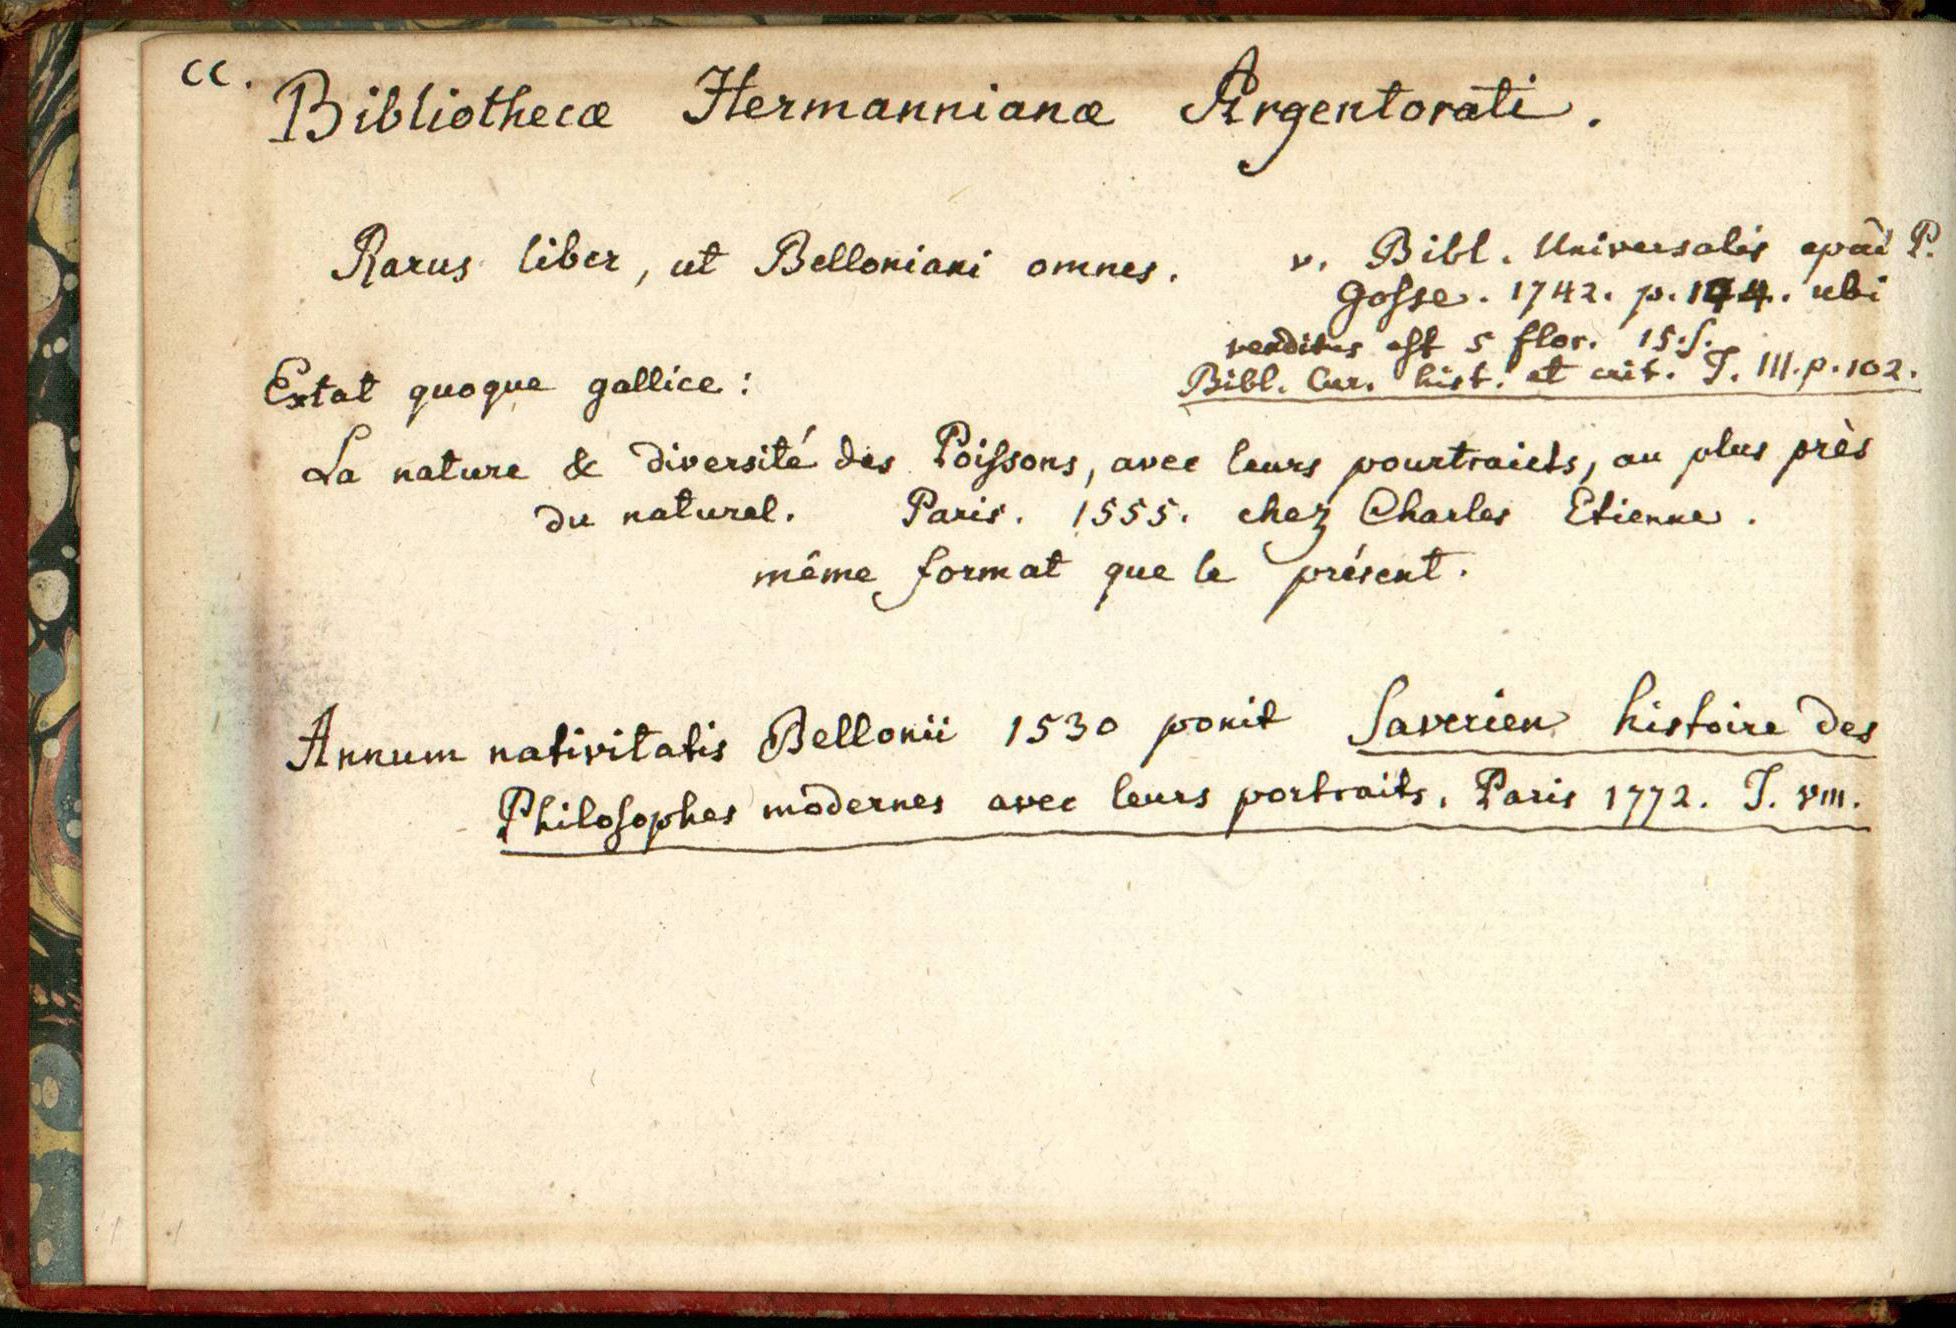 cc.
Bibliothecæ Hermannianæ Argentorati.
Rarus liber, ut Belloniani omnes.
v. Bibl. Universalis apud P.
Gosse. 1742. p. ubi
venditus est 5 flor. 15.s.
Bibl. Cur. hist. et crit. T. III. p. 102.
Extat quoque gallice:
La nature & diversité des Poissons, avec leurs pourtraicts, au plus près
du naturel. Paris. 1555. chez Charles Etienne.
même format que le présent.
Annum nativitatis Bellonii 1530 ponit Saverien histoire des
Philosophes modernes avec leurs portraits. Paris 1772. T. VIII.